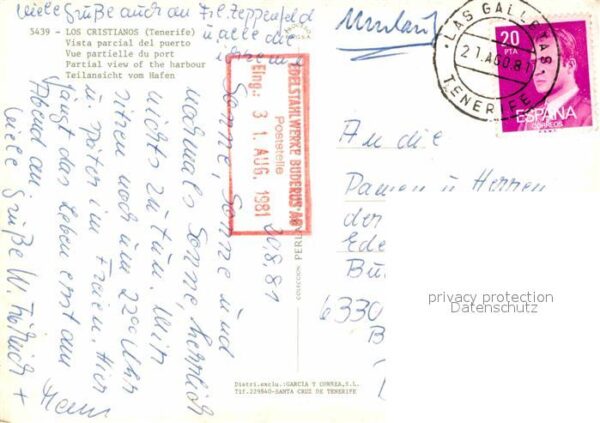 Viele Grüße auch an Frl. Zeppenfeld
u. alle die
5439 - LOS CRISTIANOS (Tenerife)
Vista parcial del puerto
Vue partielle du port
Partial view of the harbour
Teilansicht vom Hafen
20.8.81
Sonne, Sonne und
nochmals Sonne, herrlich
nichts zu tun. Wir
sitzen noch um 22°° Uhr
im Freien. Hier
fängt das Leben erst am
Abend an.
Viele Grüße W.
+
EDELSTAHLWERKE BUDERUS AG
Poststelle
Eing.: 3 1. AUG. 1981
COLECCION PERLA
Distri.exclu.:GARCIA Y CORREA,S.L.
Tlf.229840-SANTA CRUZ DE TENERIFE
Umlauf
LAS GALLETAS
21 AGO.81
TENERIFE
20
PTA
ESPAÑA
CORREOS
An die
Damen u Herren
der
Ede
Bu
6330
privacy protection
Datenschutz